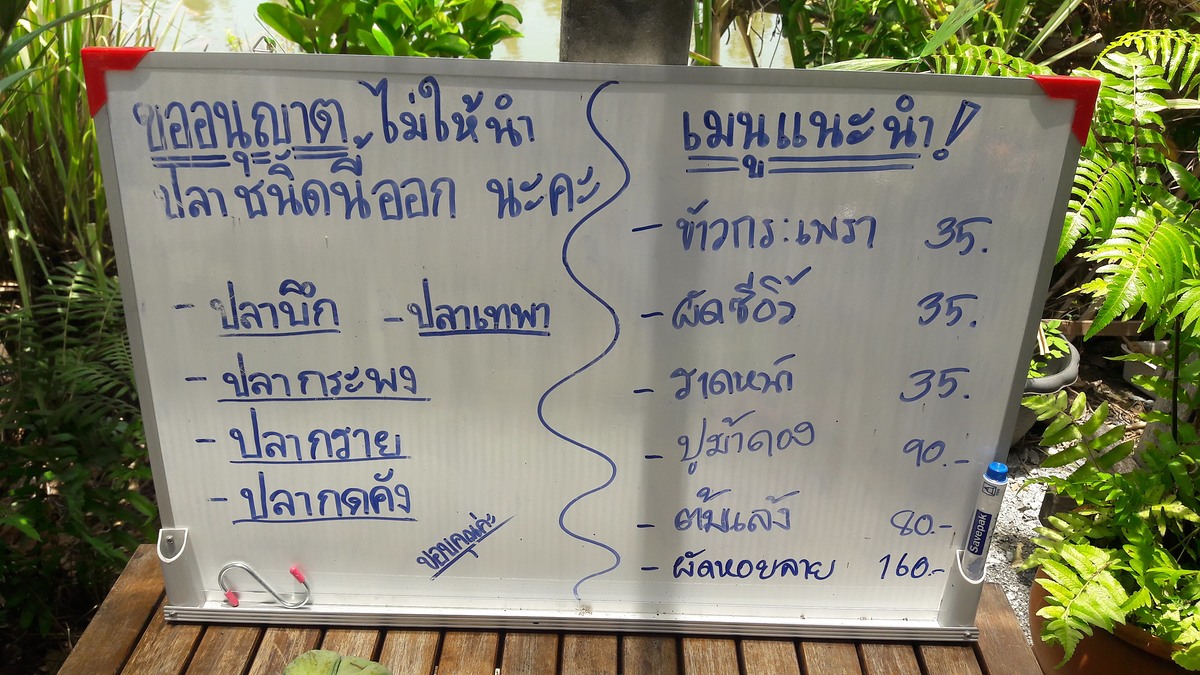 ขออนุญาต ไม่ให้นำ
ปลาชนิดนี้ออก นะคะ
- ปลาบึก - ปลาเทพา
- ปลากระพง
- ปลากราย
- ปลากดคัง
ขอบคุณค่ะ
เมนูแนะนำ!
- ข้าวกระเพรา 35.
- ผัดซีอิ้ว 35.
- ราดหน้า 35.
- ปูม้าดอง 90.-
- ต้มแล้ง 80.-
- ผัดหอยลาย 160.-
Savepak